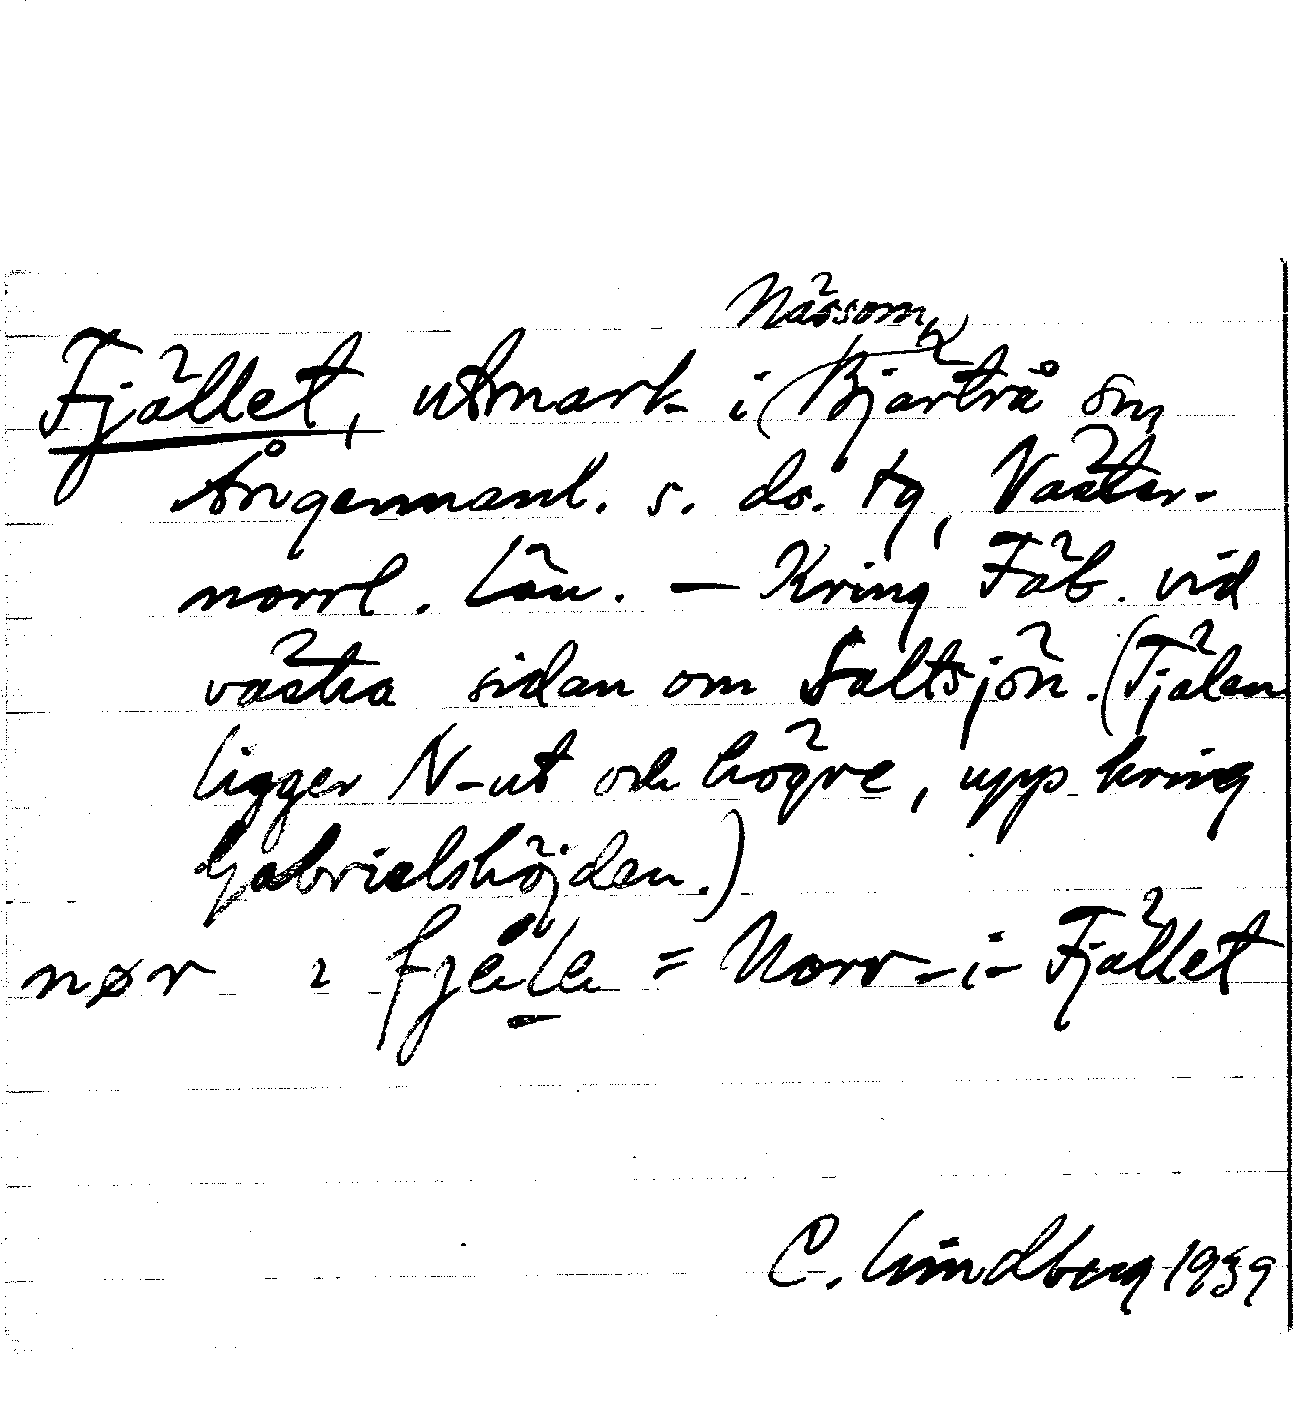 Nässom,
Fjället, utmark i Bjärtrå sn,
Ångermanl. s. ds. tg, Väster-
norrl. län. — Kring Fäb. vid
västra sidan om Saltsjön. (Tjälen
ligger N-ut och högre, uppe kring
Gabrielshöjden.)
nør i fjęlle = Norr-i-Fjället
C. Lindberg 1939